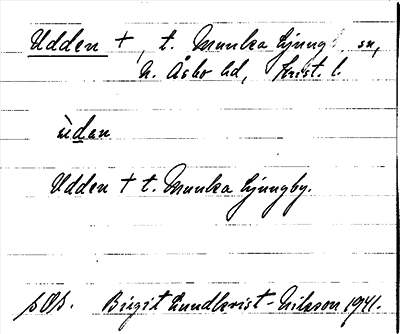 Udden +, t. Munka Ljungby sn,
N. Åsbo hd, Krist. l.
ùdan
Udden + t. Munka Ljungby.
Birgit Lundkvist-Nilsson 1941.